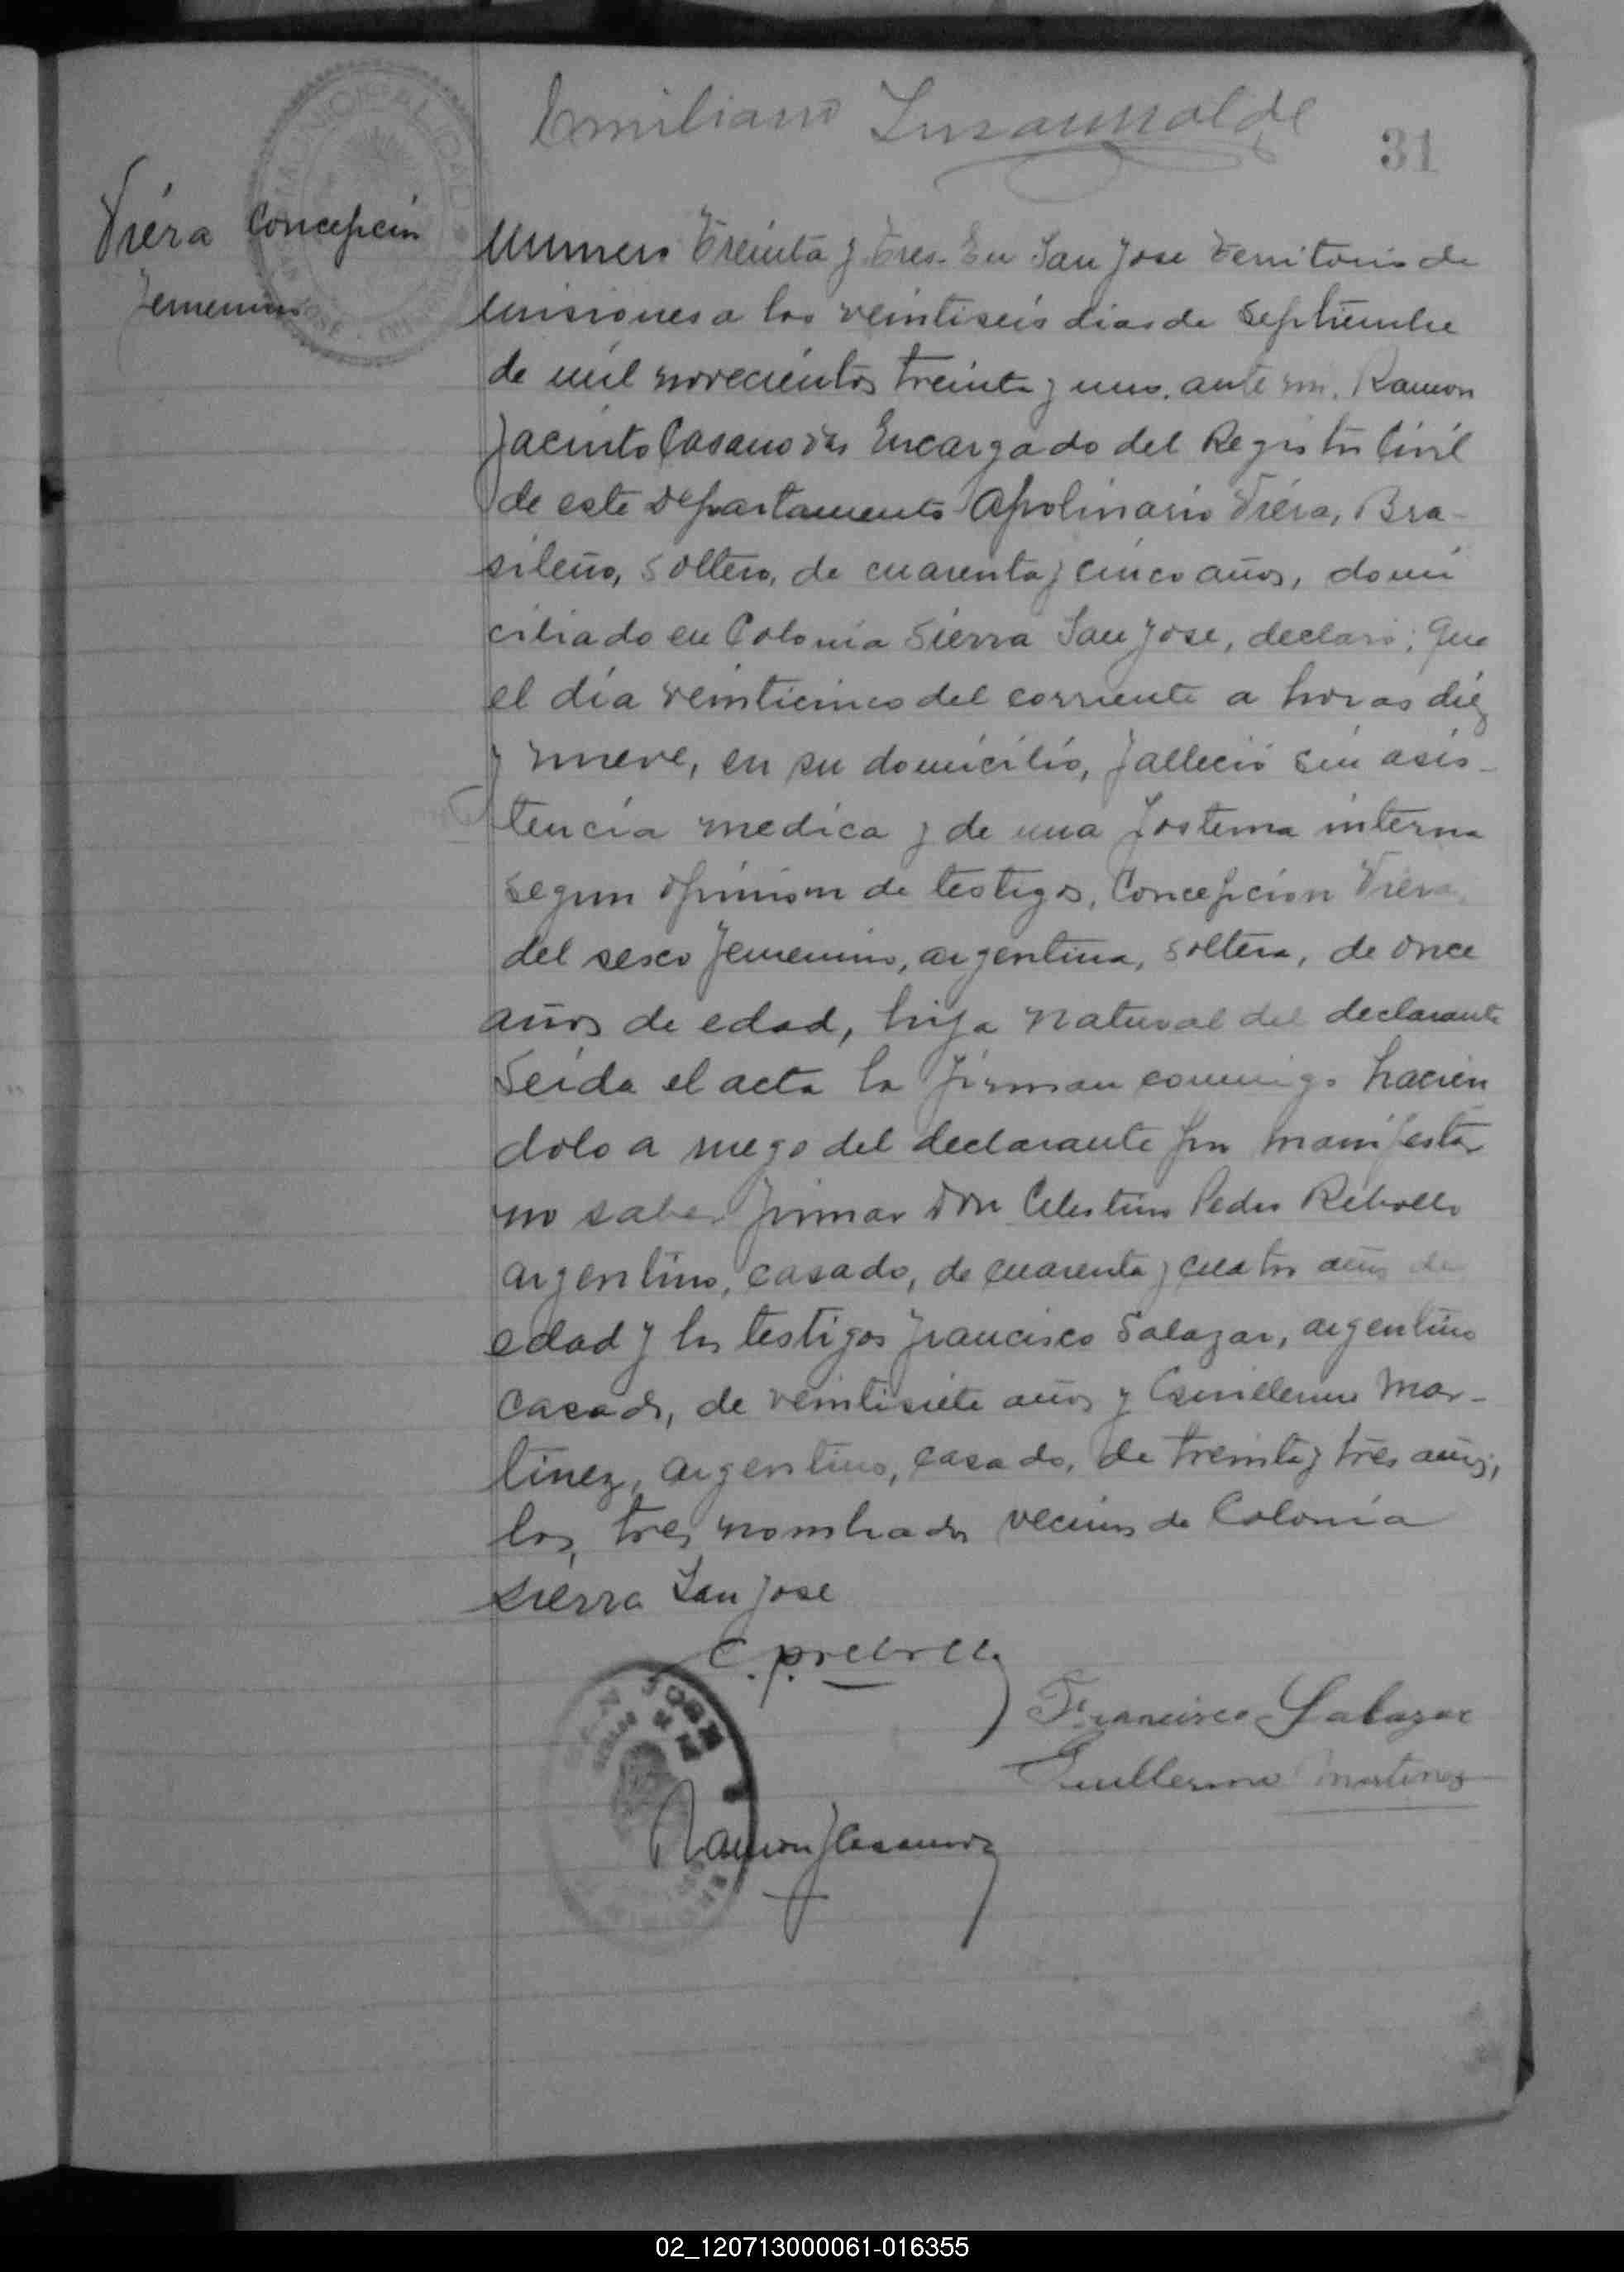 Emiliano
31
Viera Concepción
Femenino
MUNICIPALIDAD
SAN JOSE
Numero Treinta y Tres. En San Jose Territorio de
Misiones a los veintiseis dias de Septiembre
de mil novecientos treinta y uno, ante mi, Ramon
Jacinto Casanova Encargado del Registro Civil
de este Departamento Apolinario Viera, Bra-
sileño, soltero, de cuarenta y cinco años, domi
ciliado en Colonia Sierra San Jose, declaró; Que
el día veinticinco del corriente a horas diez
y nueve, en su domicilio, falleció sin asis-
tencia medica y de una Postema interna
segun opinion de testigos, Concepcion Viera,
del sexo femenino, argentina, soltera, de once
años de edad, hija natural del declarante
Leida el acta la firman conmigo hacien
dolo a ruego del declarante por manifestar
no saber firmar Don Celestino Pedro Rebollo
argentino, casado, de cuarenta y cuatro años de
edad y los testigos Francisco Salazar, argentino
casado, de veintisiete años y Guillermo Mar-
tinez, argentino, casado, de treinta y tres años,
los tres nombrados vecinos de Colonia
Sierra San Jose
C. P. Rebollo
SAN JOSE
Francisco Salazar
Guillermo Martinez
Ramon J Casanova
02_120713000061-016355